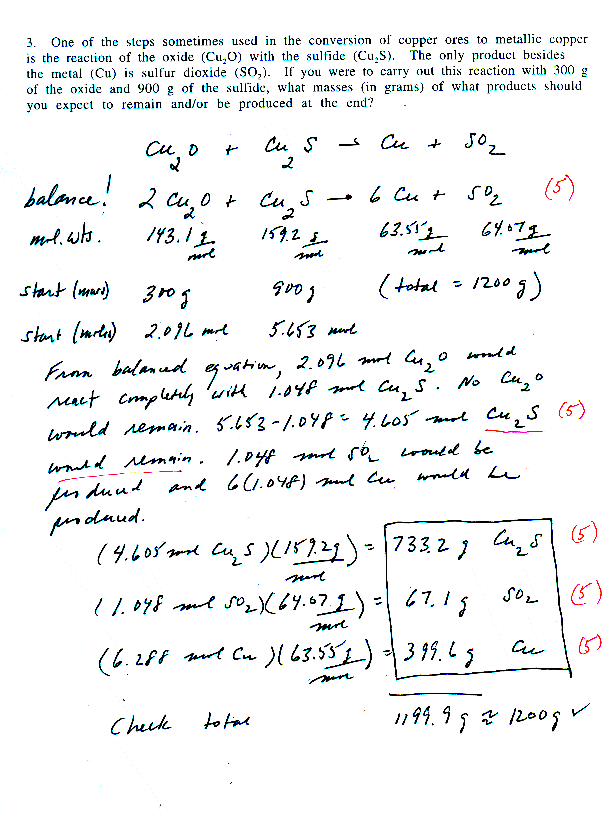 3. One of the steps sometimes used in the conversion of copper ores to metallic copper
is the reaction of the oxide (Cu₂O) with the sulfide (Cu₂S). The only product besides
the metal (Cu) is sulfur dioxide (SO₂). If you were to carry out this reaction with 300 g
of the oxide and 900 g of the sulfide, what masses (in grams) of what products should
you expect to remain and/or be produced at the end?
Cu₂O + Cu₂S → Cu + SO₂
balance! 2 Cu₂O + Cu₂S → 6 Cu + SO₂ (5)
mol. wts. 143.1 g/mol 159.2 g/mol 63.55 g/mol 64.07 g/mol
start (mass) 300 g 900 g (total = 1200 g)
start (moles) 2.096 mol 5.653 mol
From balanced equation, 2.096 mol Cu₂O would
react completely with 1.048 mol Cu₂S. No Cu₂O
would remain. 5.653 - 1.048 = 4.605 mol Cu₂S (5)
would remain. 1.048 mol SO₂ would be
produced and 6(1.048) mol Cu would be
produced.
(4.605 mol Cu₂S)(159.2 g/mol) = 733.2 g Cu₂S (5)
(1.048 mol SO₂)(64.07 g/mol) = 67.1 g SO₂ (5)
(6.288 mol Cu)(63.55 g/mol) = 399.6 g Cu (5)
Check total 1199.9 g ≈ 1200 g ✓